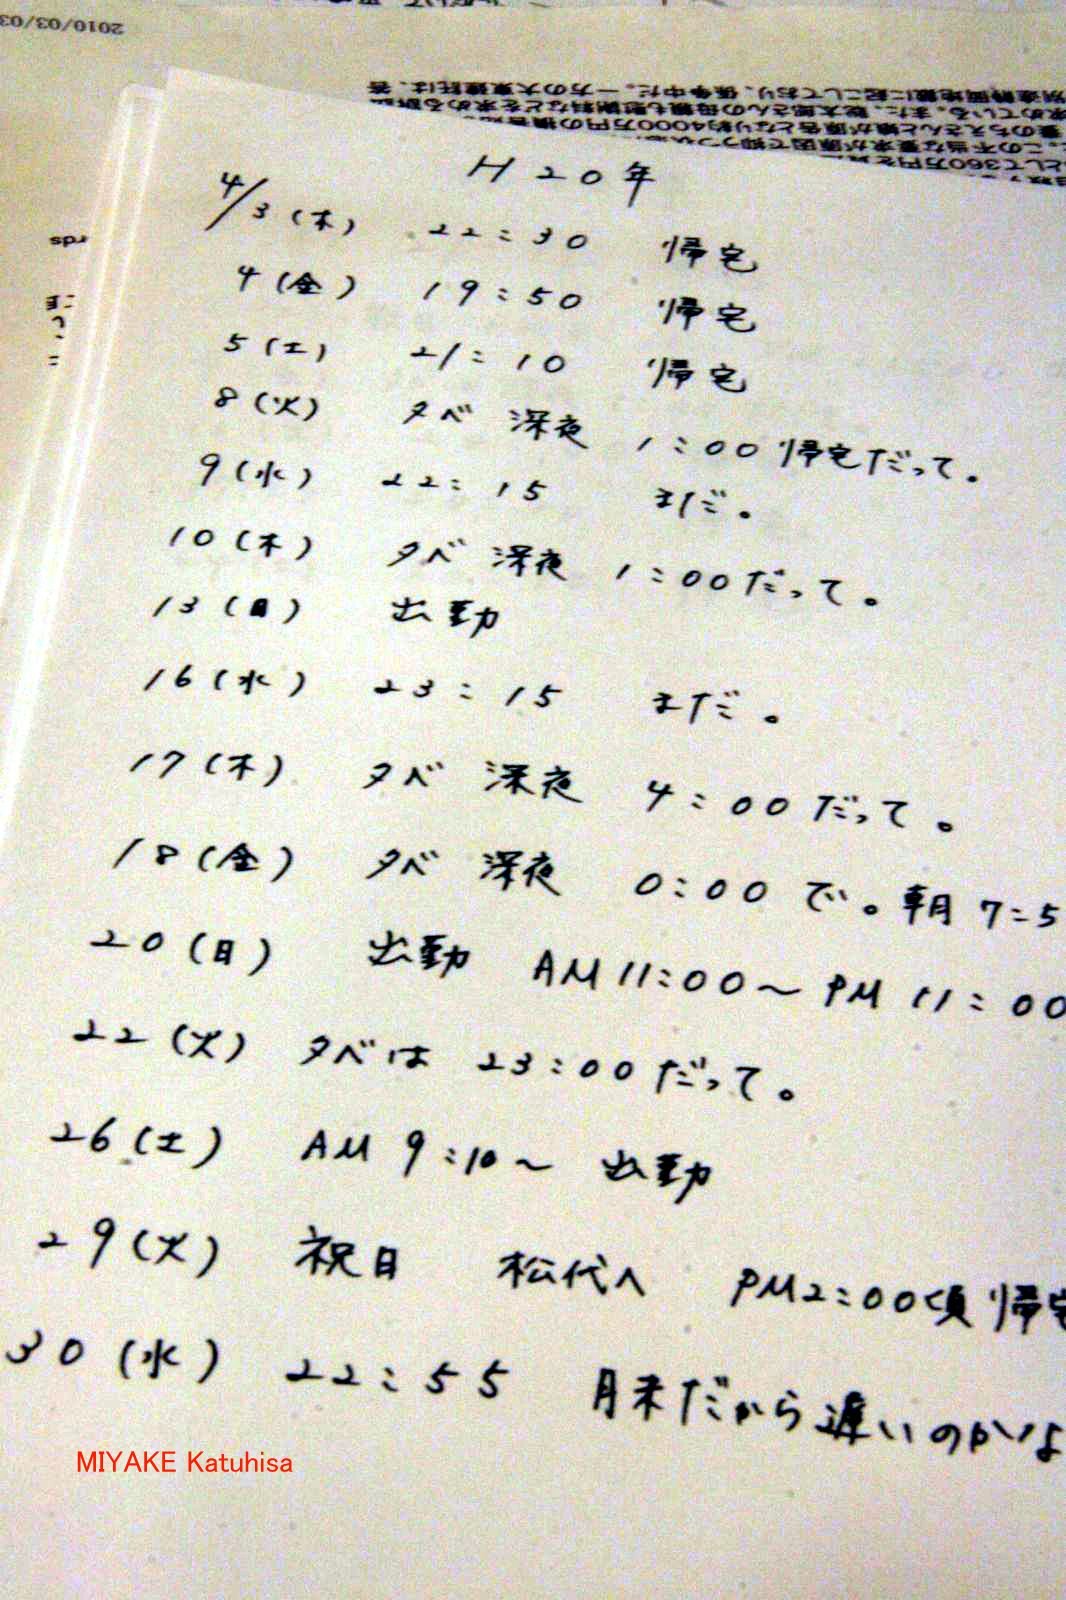 2010/03/03
H20年
4/3(木) 22:30 帰宅
4(金) 19:50 帰宅
5(土) 21:10 帰宅
8(火) 夕べ 深夜 1:00 帰宅だって。
9(水) 22:15 まだ。
10(木) 夕べ 深夜 1:00だって。
13(日) 出勤
16(水) 23:15 まだ。
17(木) 夕べ 深夜 4:00だって。
18(金) 夕べ 深夜 0:00で。朝7:5
20(日) 出勤 AM11:00〜PM11:00
22(火) 夕べは 23:00だって。
26(土) AM 9:10〜 出勤
29(火) 祝日 松代へ PM2:00頃 帰宅
30(水) 22:55 月末だから遅いのかなよ
MIYAKE Katuhisa